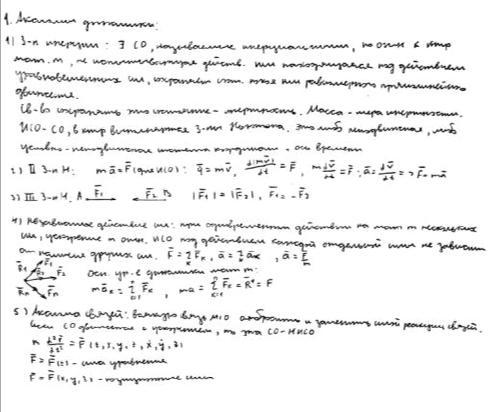 1. Аксиомы динамики:
1) З-н инерции: ∃ СО, называемые инерциальными, по отн. к ктр
мат. т, не испытывающая действ. или находящаяся под действием
уравновешенных сил, сохраняет сост. покоя или равномерного прямолинейного
движения.
Св-во сохранять это состояние - инертность. Масса - мера инертности.
ИСО - СО, в ктр выполняется 3-н Ньютона. Это либо неподвижная, либо
условно-неподвижная система координат + ось времени
2) II З-н Н: mā = F̄ (для ИСО): q̄ = mv̄, d(mv̄)/dt = F̄, m dv̄/dt = F̄; ā = dv̄/dt => F̄ = mā
3) III З-н Н. A F̄₁ F̄₂ B |F̄₁| = |F̄₂|, F̄₁ = -F̄₂
4) Независимое действие сил: при одновременном действии на мат т нескольких
сил, ускорение т отн. ИСО под действием каждой отдельной силы не зависит
от наличия других сил. F̄ = Σ F̄ₖ, ā = Σ āₖ, ā = F̄/m
F̄₁ F̄₂ F̄ₙ Осн. ур-е динамики мат т:
māₖ = Σ F̄ₖ, mā = Σ F̄ₖ = R̄ = F̄
5) Аксиома связей: всякую связь можно отбросить и заменить силой реакции связей.
Если СО движется с ускорением, то эта СО - НИСО
m d²r̄/dt² = F̄ (t, x, y, z, ẋ, ẏ, ż)
F̄ = F̄(t) - сила управления
F̄ = F̄(x, y, z) - позиционные силы